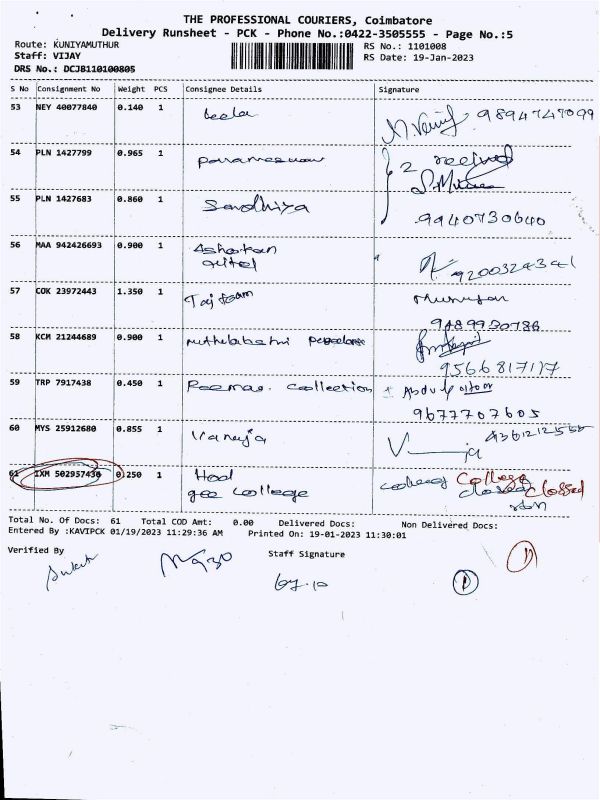 THE PROFESSIONAL COURIERS, Coimbatore
Delivery Runsheet - PCK - Phone No.:0422-3505555 - Page No.:5
Route: KUNIYAMUTHUR
RS No.: 1101008
Staff: VIJAY
RS Date: 19-Jan-2023
DRS No.: DCJB110100805
S No Consignment No Weight PCS Consignee Details Signature
53 NEY 40077840 0.140 1 Leela 9894747099
54 PLN 1427799 0.965 1 Parameswari 2 received
55 PLN 1427683 0.860 1 Sandhiya
9940730640
56 MAA 942426693 0.900 1 Ashokan
9200324341
57 COK 23972443 1.350 1 Taj team Murugan
9489930786
58 KCM 21244689 0.900 1
9566817117
59 TRP 7917438 0.450 1 Reemas Collection Abdul
9677707605
60 MYS 25912680 0.855 1 Vanaja
61 IXM 502957430 0.250 1 Hod College
gee College closed closed
Total No. Of Docs: 61 Total COD Amt: 0.00 Delivered Docs: Non Delivered Docs:
Entered By :KAVIPCK 01/19/2023 11:29:36 AM Printed On: 19-01-2023 11:30:01
Verified By Staff Signature
1